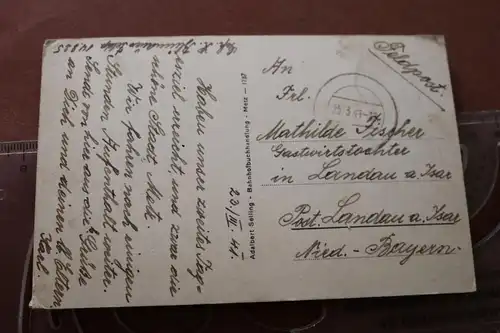 Feldpost
An
Frl.
Mathilde Fischer
Gastwirtstochter
in Landau a. Isar
Post. Landau a. Isar
Nied.-Bayern.
Adalbert Seiling - Bahnhofbuchhandlung - Metz - 1197
23./III. 41.
Haben unser zweites Tag-
esziel erreicht, und zwar die
schöne Stadt Metz.
Wir fahren nach einigen
Stunden Aufenthalt weiter.
Sende von hier aus die Grüße
an Dich und deinen lb. Eltern
Karl.